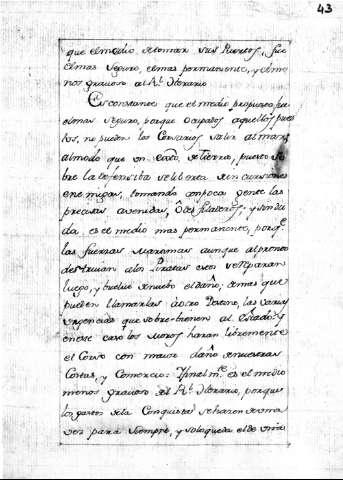 43
que el medio de tomar sus Puertos, fue
el mas seguro, el mas permanente, y el me
nos gravoso al Rl. Herario
Es constante que el medio propuesto fue
el mas seguro, porque ocupados aquellos puer
tos, no pueden los Corsarios salir al mar,
al modo que un Exto. de tierra, puesto so
bre la defensiba se liberta de incursiones
enemigas, tomando con poca gente las
precisas avenidas, ô desfiladeros; y sin du
da, es el medio mas permanente, porqe.
las fuerzas Maritimas aunque al pronto
destruian a los Piratas estos se reparan
luego, y buelve de nuebo el daño; demas que
pueden llamarlas à otro Destino, las varias
urgencias que sobre-bienen al Estado, y
en este caso los Moros haran libremente
el Corso con maior daño de nuestras
Costas, y Comercio: Finalmte. es el medio
menos gravoso al Rl. Herario, porque
los gastos de la Conquista se hazen de una
vez para siempre, y solo queda el de